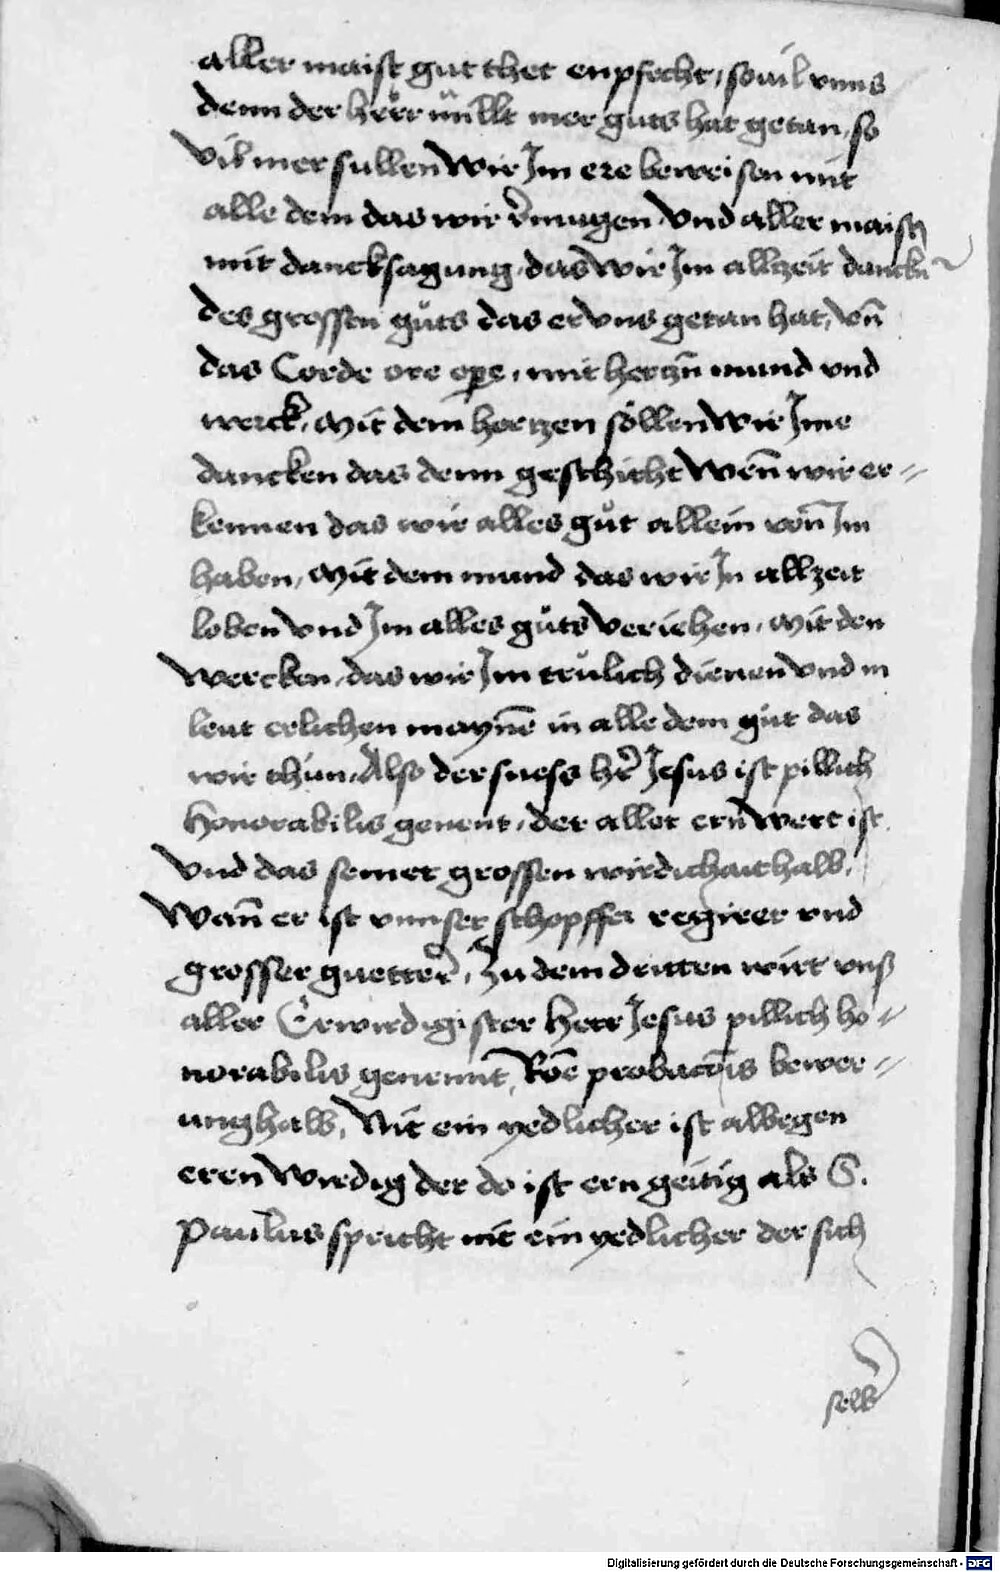 aller maist gut thet enpfecht, souil vnns
denn der herr müllt mer guts hat getan, so
vil mer sullen wir Im ere beweisen mit
alle dem das wir v̄mugen vnd aller maist
mit dancksagung, das wir Im allzeit danckn̄
des grossen gůts das er vns getan hat, vn̄
das Corde ore ope, mit hertzn̄ mund vnd
werck, Mit dem hertzen söllen wir Ime
dancken das denn geschicht wen̄ wir er-
kennen das wir alles gůt allein von̄ Im
haben, Mit dem mund das wir In allzeit
loben vnd Im alles gůts veriehen, Mit den
wercken, das wir Im trůlich dienen vnd in
leut erlichen maynē in alle dem gut das
wir thun, Also der suess hr̄ Jesus ist pillich
Honorabilis genent, der aller ern wert ist,
vnd das seiner grossen wirdichait halb,
Wan̄ er ist vnnser schopffer regirer vnd
grosser guetter̄, Zu dem dritten wirt vnß
aller Erwirdigister Herr Jesus pillich ho-
norabilis genennt, Rōe probacōis bewer-
ung halb, Nit ein yedlicher ist albegen
eren wirdig der do ist ern geitig als S.
Paulus spricht nit ein yedlicher der sich
selb
Digitalisierung gefördert durch die Deutsche Forschungsgemeinschaft - DFG